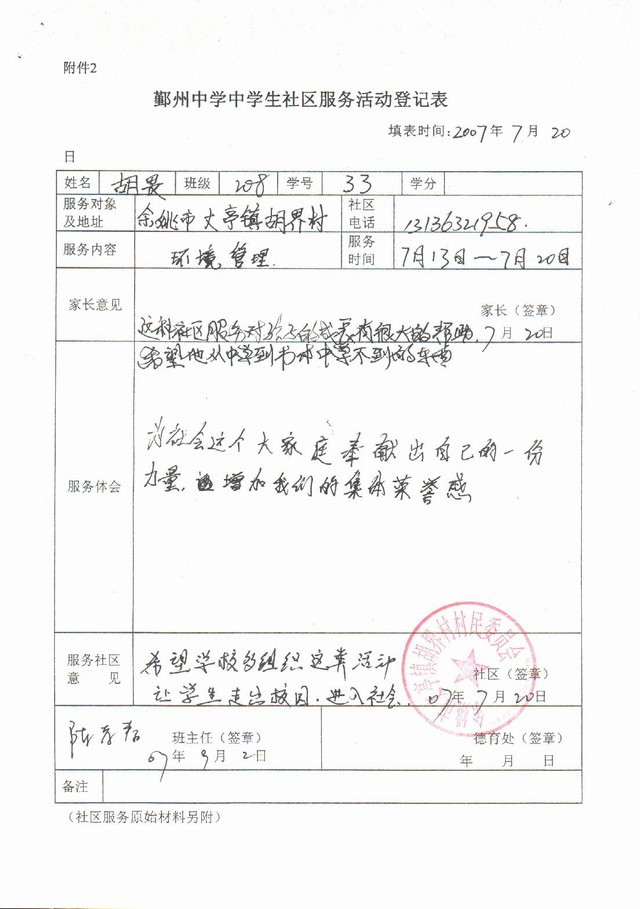 附件2
鄞州中学中学生社区服务活动登记表
填表时间:2007年7月20
日
姓名 胡晟 班级 208 学号 33 学分
服务对象及地址 余姚市丈亭镇胡界村 社区电话 13136321958.
服务内容 环境管理. 服务时间 7月13日—7月20日
家长意见 家长（签章）
这种社区服务对孩子的成长有很大的帮助, 7月20日
希望他从中学到书本中学不到的东西
为社会这个大家庭奉献出自己的一份
服务体会 力量,增加我们的集体荣誉感
丈亭镇胡界村村民委员会
服务社区意见 希望学校多组织这类活动 社区（签章）
让学生走出校园.进入社会. 07年7月20日
班主任（签章） 德育处（签章）
07年9月2日 年 月 日
备注
（社区服务原始材料另附）